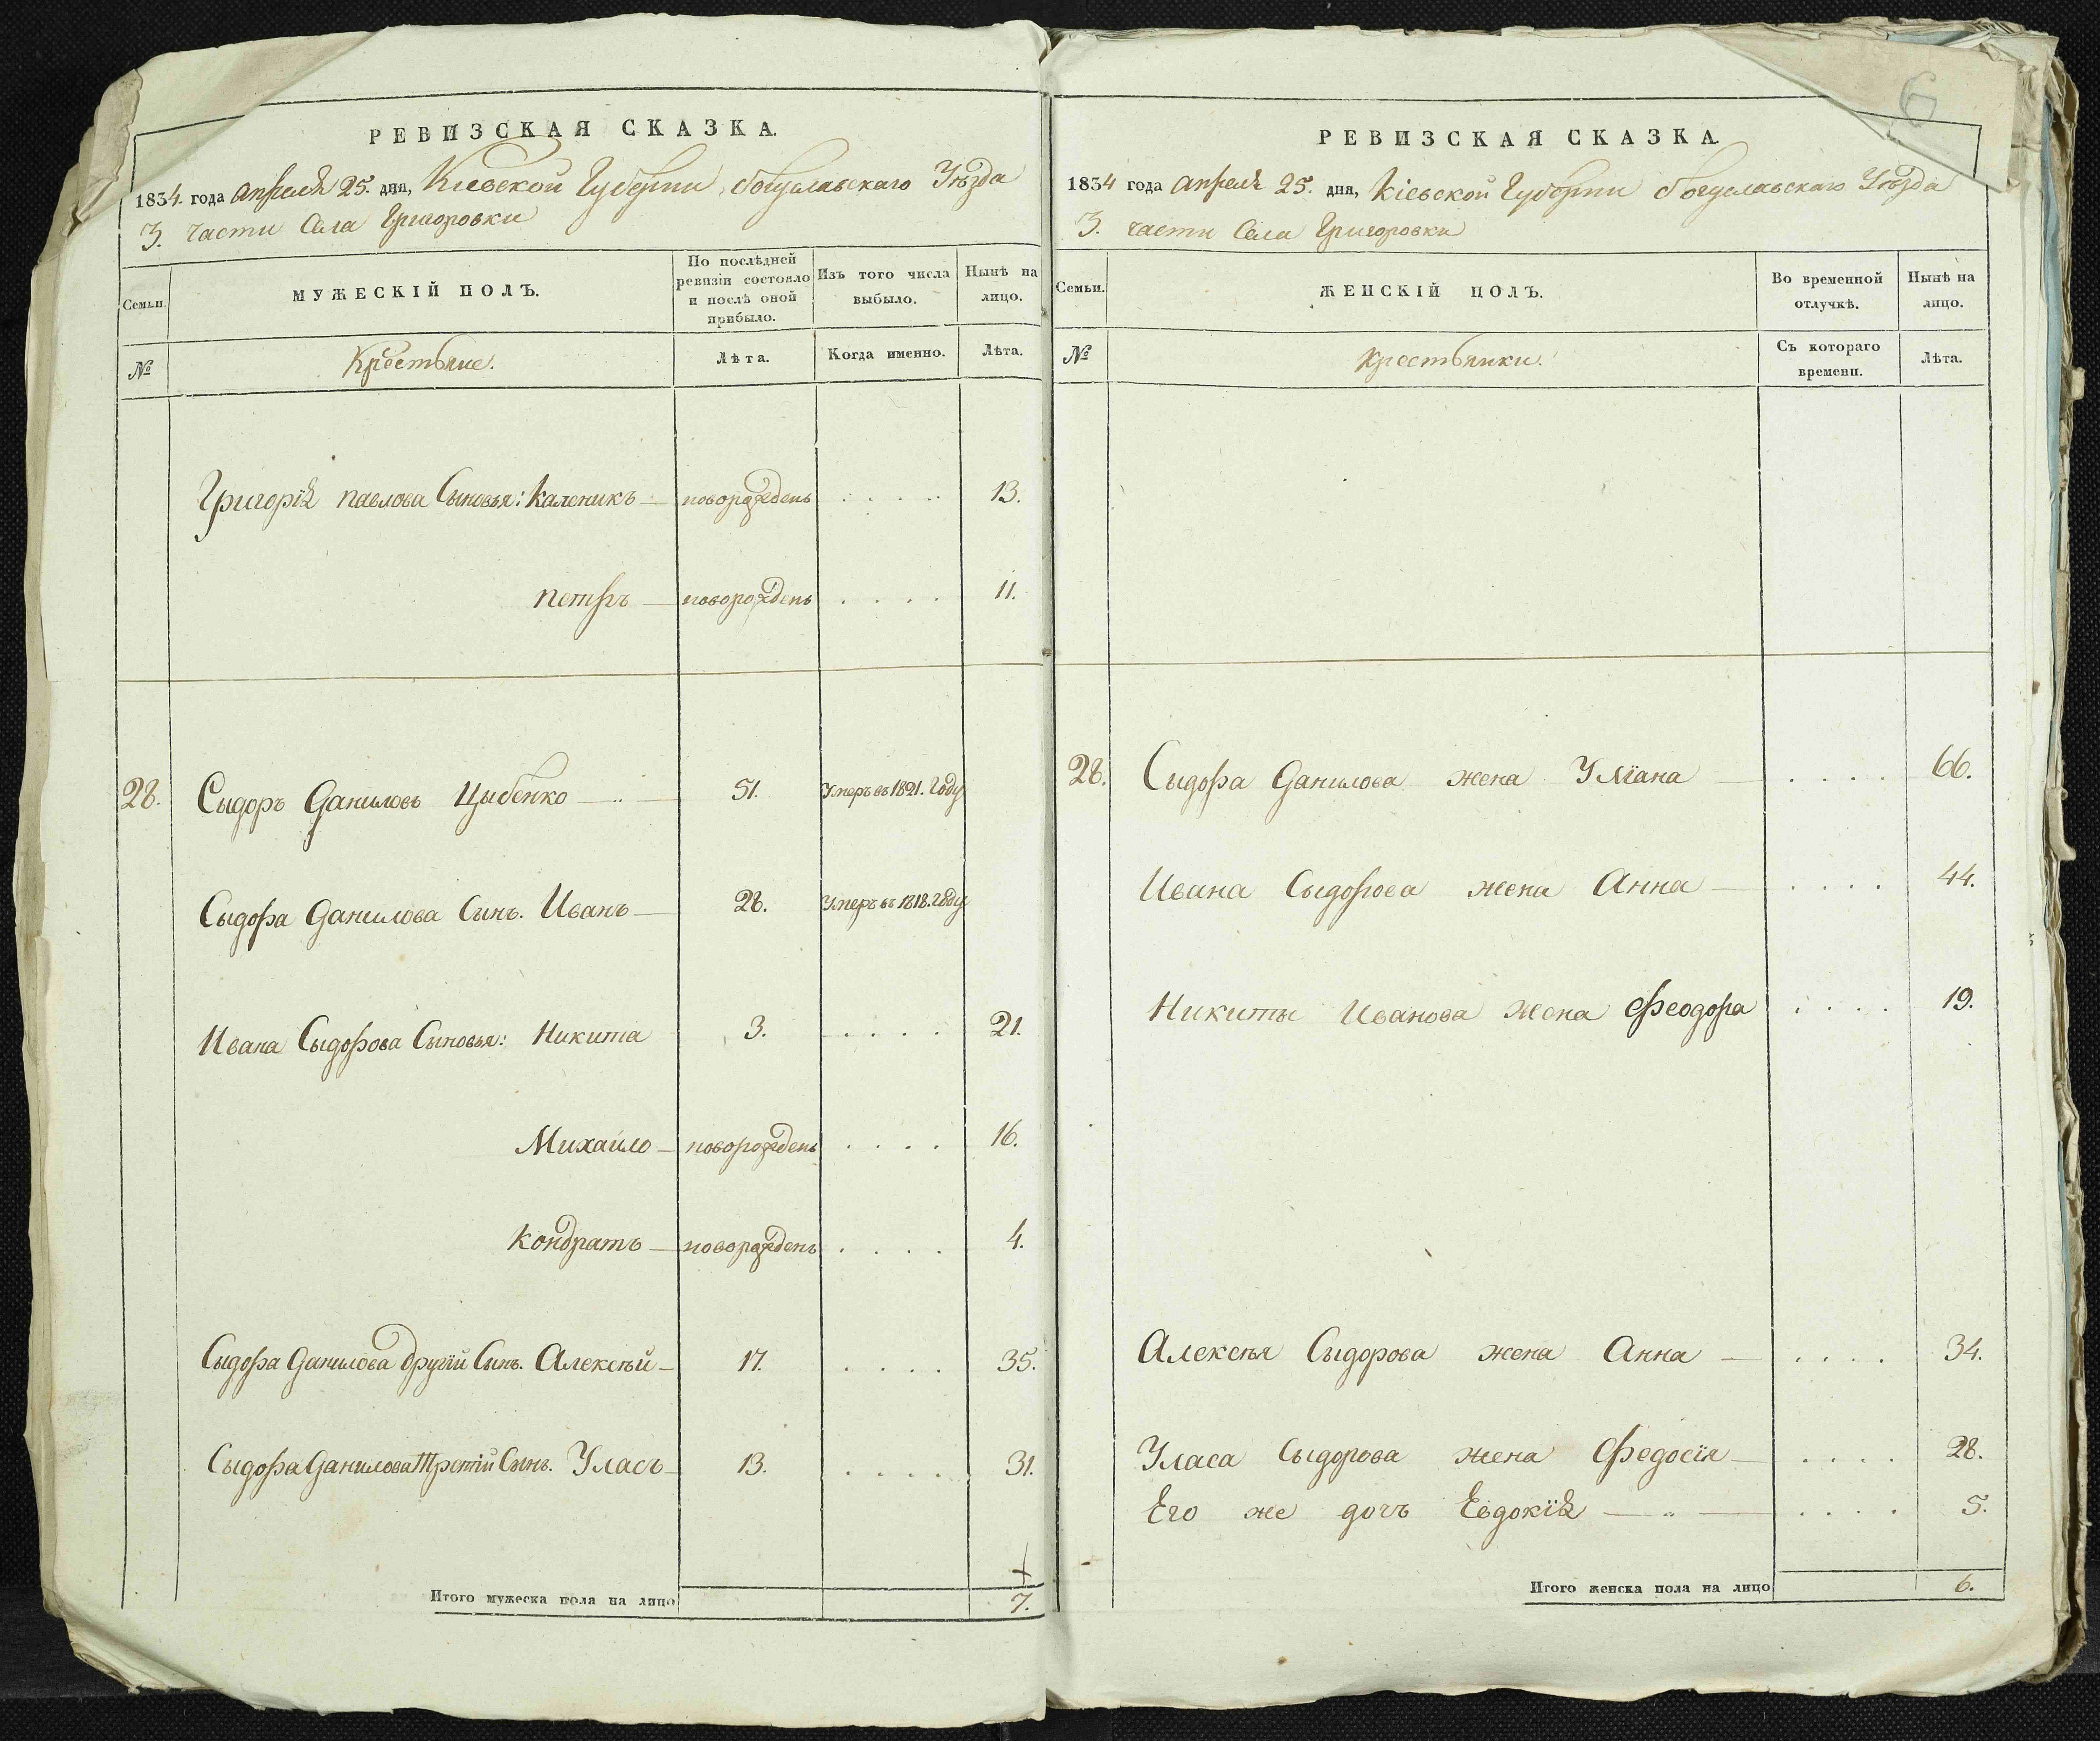 РЕВИЗСКАЯ СКАЗКА.
1834. года апреля 25. дня, Кіевской Губерніи, богуславскаго Уѣзда
3. части Села Григоровки
Семьи.
МУЖЕСКІЙ ПОЛЪ.
По послѣдней ревизіи состояло и послѣ оной прибыло.
Изъ того числа выбыло.
Нынѣ на лицо.
№
Крестьяне.
Лѣта.
Когда именно.
Лѣта.
Григорія павлова Сыновья: Каленикъ — новорожденъ . . . . . 13.
петръ — новорожденъ . . . . 11.
28. Сыдоръ Даниловъ Цыбенко — „ — 51. Умеръ въ 1821. Году
Сыдора Данилова Сынъ. Иванъ — 28. Умеръ въ 1818. Году
Ивана Сыдорова Сыновья: Никита 3. . . . . 21.
Михайло — новорожденъ . . . . 16.
Кондратъ — новорожденъ . . . . 4.
Сыдора Данилова другій Сынъ. Алексѣй — 17. . . . . 35.
Сыдора Данилова Третій Сынъ. Уласъ — 13. . . . . 31.
Итого мужеска пола на лицо 7.
6
РЕВИЗСКАЯ СКАЗКА.
1834 года апреля 25. дня, Кіевской Губерніи богуславскаго Уѣзда
3. части Села Григоровки
Семьи.
ЖЕНСКІЙ ПОЛЪ.
Во временной отлучкѣ.
Нынѣ на лицо.
№
Крестьянки.
Съ котораго времени.
Лѣта.
28. Сыдора Данилова жена Уліана — . . . . 66.
Ивана Сыдорова жена Анна — . . . . 44.
Никиты Иванова жена Феодора . . . . 19.
Алексѣя Сыдорова жена Анна — . . . . 34.
Уласа Сыдорова жена Федосія — . . . . 28.
Его же дочъ Евдокія — „ — . . . . 5.
Итого женска пола на лицо 6.